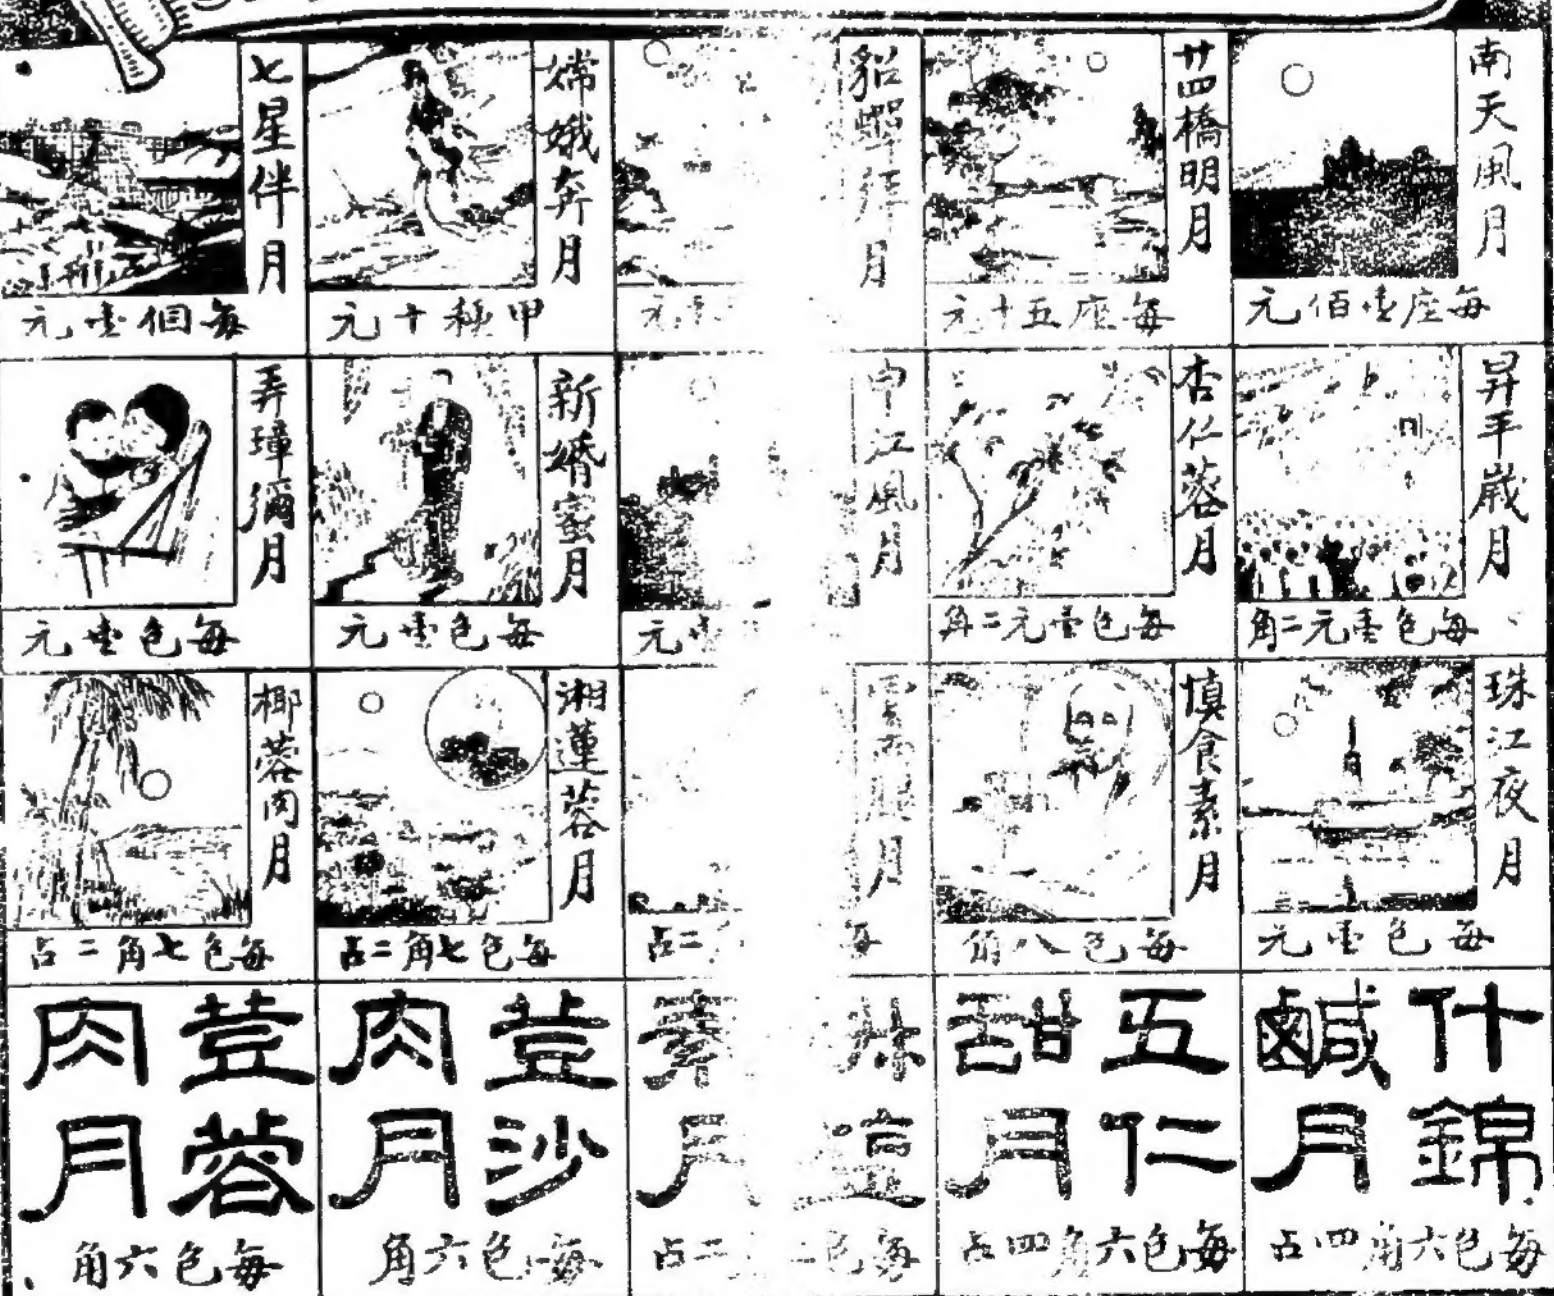 南天風月
每座壹佰元
廿四橋明月
每座五十元
貂蟬拜月
元
嫦娥奔月
甲種十元
七星伴月
每個壹元
昇平歲月
每色壹元二角
杏仁蓉月
每色壹元二角
申江風月
壹元
新婚蜜月
每色壹元
弄璋彌月
每色壹元
珠江夜月
每色壹元
慎食素月
每色八角
腿月
每二占
湘蓮蓉月
每色七角二占
椰蓉肉月
每色七角二占
什錦
鹹月
每色六角四占
五仁
甜月
每色六角四占
荳
素月
每色二占
荳沙
肉月
每色六角
荳蓉
肉月
每色六角